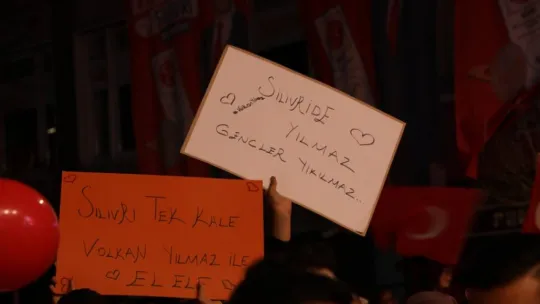 SİLİVRİDE
YILMAZ
GENÇLER YIKILMAZ..
SİLİVRİ TEK KALE
VOLKAN YILMAZ İLE
EL ELE